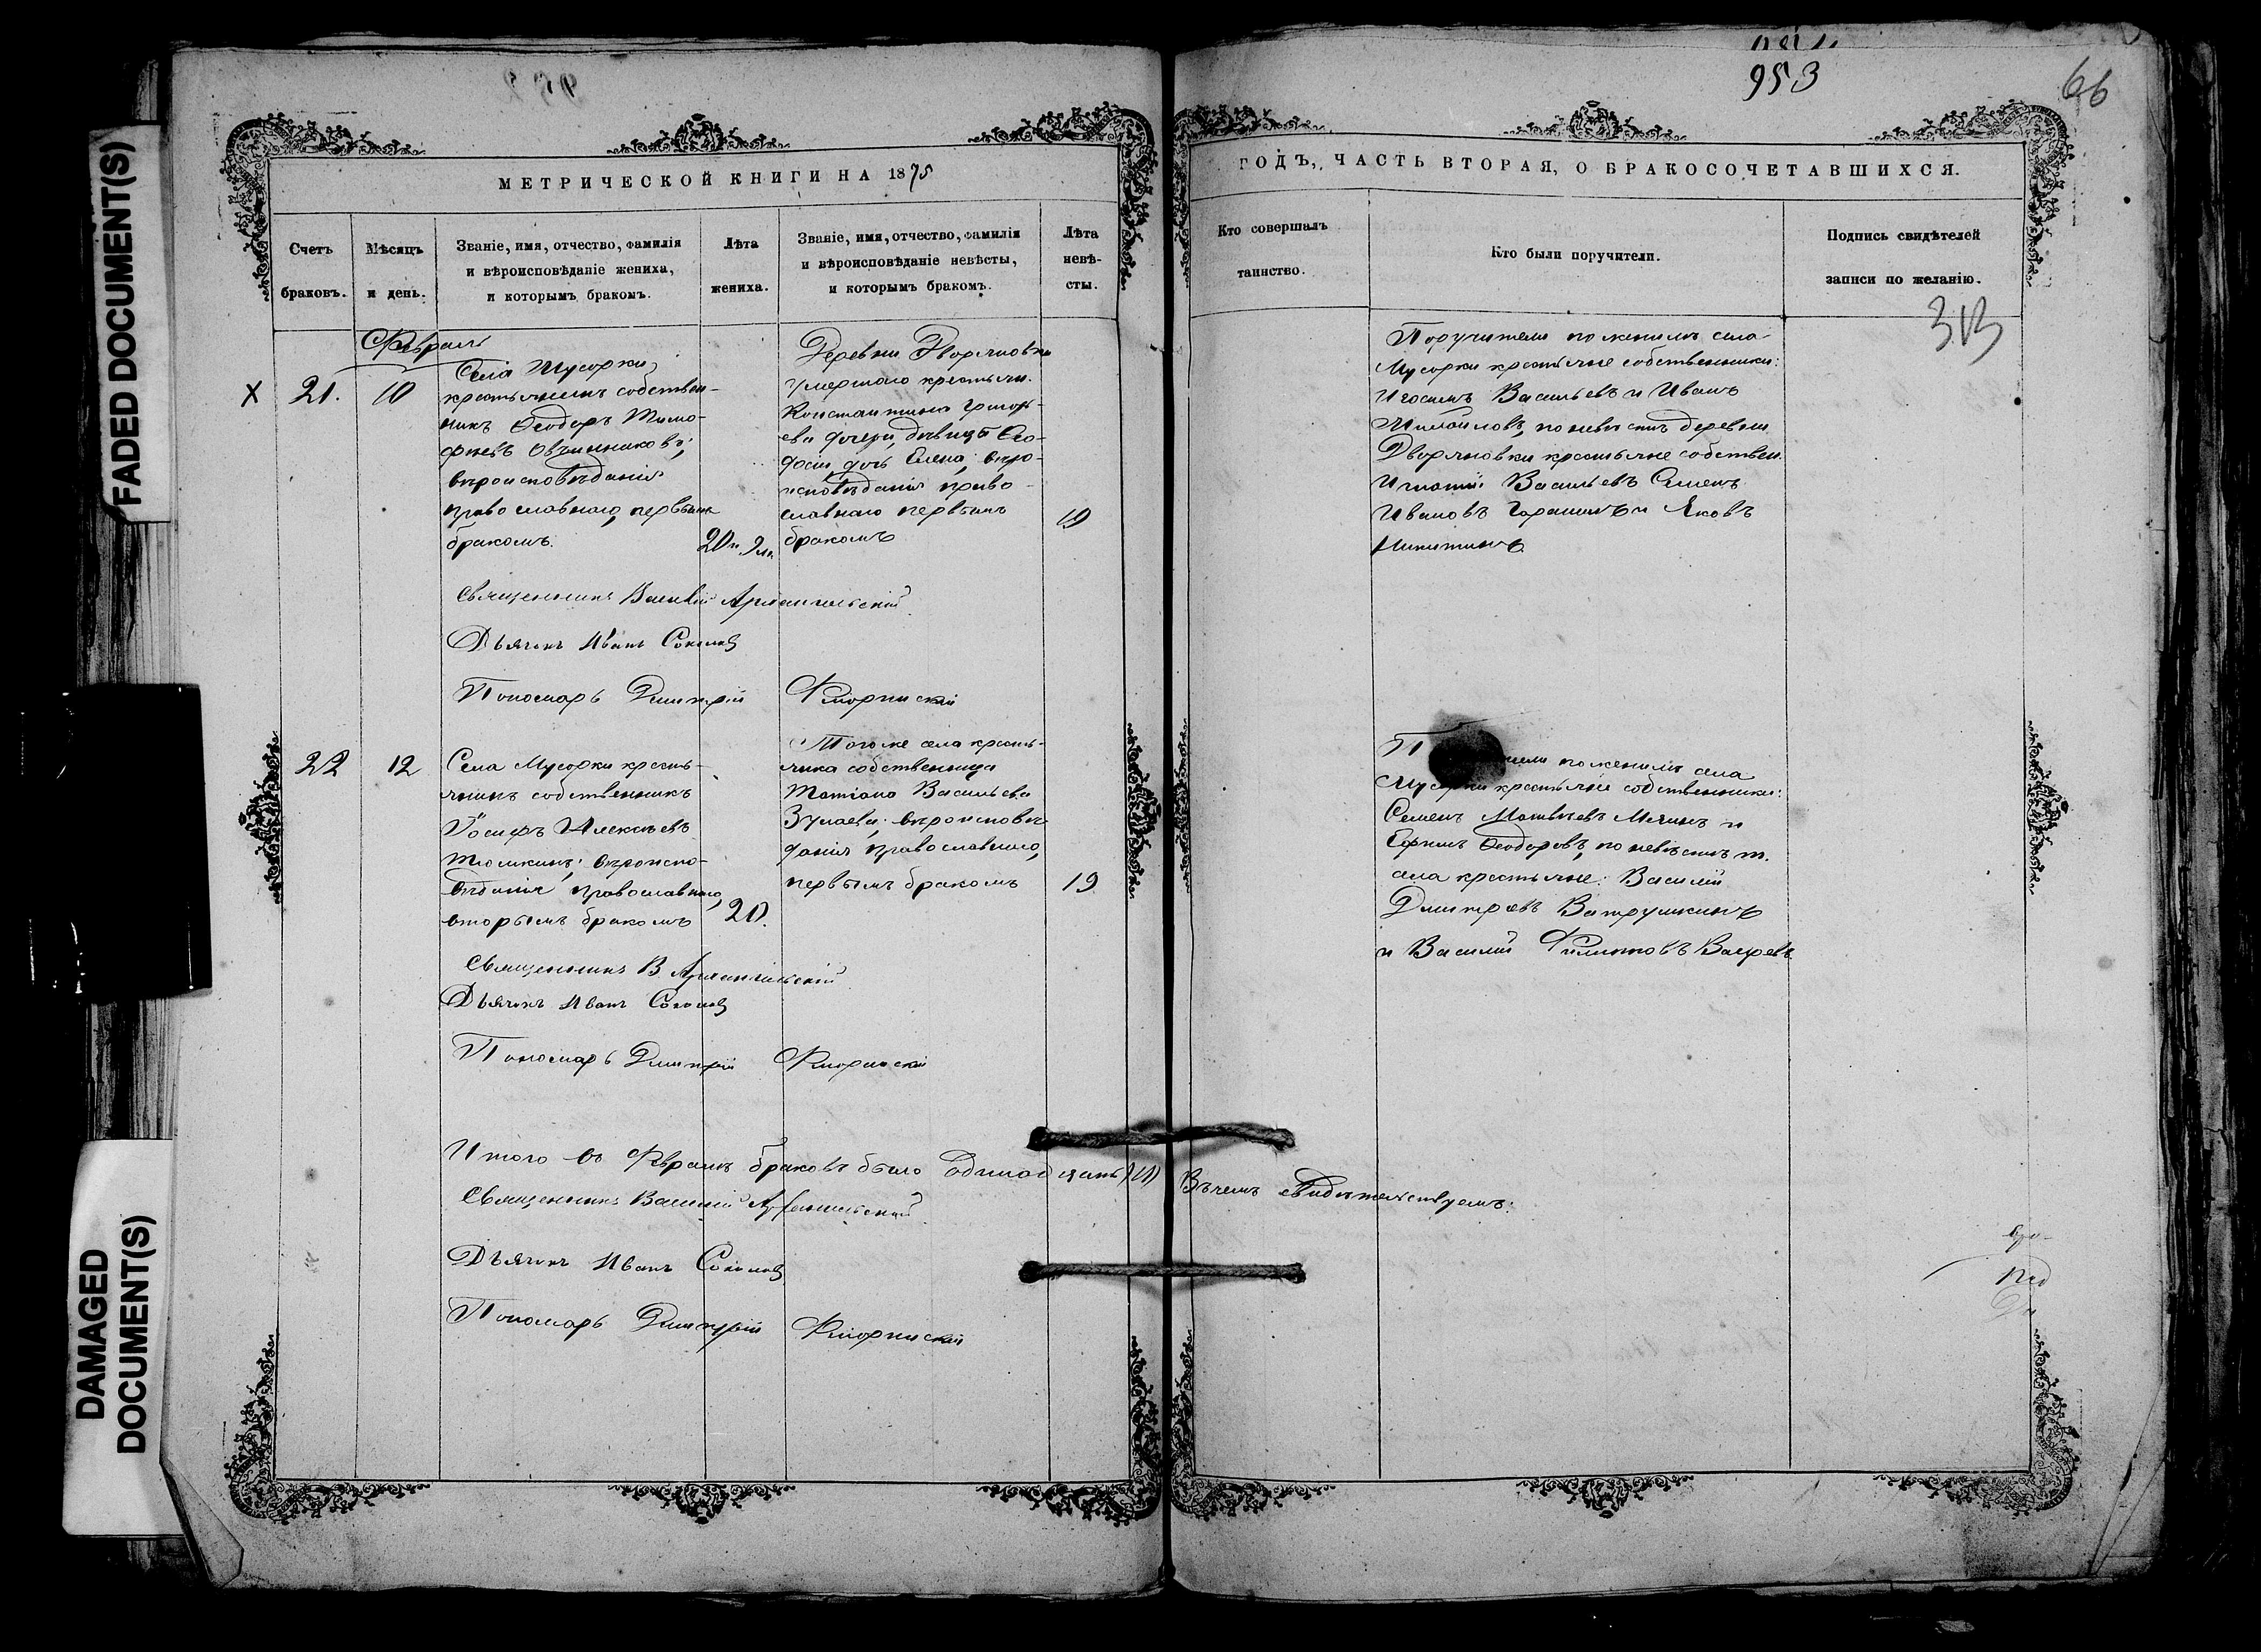 953
66
FADED DOCUMENT(S)
DAMAGED
DOCUMENT(S)
МЕТРИЧЕСКОЙ КНИГИ НА 1875
Счетъ
браковъ.
Мѣсяцъ
и день.
Званіе, имя, отчество, фамилія
и вѣроисповѣданіе жениха,
и которымъ бракомъ.
Лѣта
жениха.
Званіе, имя, отчество, фамилія
и вѣроисповѣданіе невѣсты,
и которымъ бракомъ.
Лѣта
невѣ-
сты.
Февраль
X 21. 10
Села Мусорки,
крестьянинъ собствен-
никъ Ѳеодоръ Тимо-
феевъ Овчинниковъ;
вѣроисповѣданія
православнаго, первымъ
бракомъ.
Деревни Дворяновки
умершаго крестьян.
Константина Григорь-
ева дочери, дѣвицы Ѳео-
досіи дочь Елена; вѣро-
исповѣданія право-
славнаго первымъ
бракомъ
19
Священникъ Василій Архангельскій
Дьячекъ Иванъ Соколовъ
Пономарь Димитрій Флоринскій
22 12
Села Мусорки кресть-
янинъ собственникъ
Іосифъ Алексѣевъ
вѣроиспо-
вѣданія православнаго,
вторымъ бракомъ
20.
Тогоже села кресть-
янка собственница
Татіана Васильева
вѣроисповѣ-
данія православнаго,
первымъ бракомъ
19
Священникъ В. Архангельскій
Дьячекъ Иванъ Соколовъ
Пономарь Димитрій Флоринскій
Итого въ Февралѣ браковъ было одинадцать (11)
Священникъ Василій Архангельскій
Дьячекъ Иванъ Соколовъ
Пономарь Димитрій Флоринскій
ГОДЪ, ЧАСТЬ ВТОРАЯ, О БРАКОСОЧЕТАВШИХСЯ.
Кто совершалъ
таинство.
Кто были поручители.
Подпись свидѣтелей
записи по желанію.
313
Поручители по женихѣ села
Мусорки крестьяне собственники:
Васильевъ и Иванъ
Михайловъ, по невѣстѣ деревни
Дворяновки крестьяне собствен.
Игнатій Васильевъ Семенъ
Ивановъ Гарашинъ и Яковъ
Никитинъ
по женихѣ села
Мусорки крестьяне собственники:
Семенъ Матвѣевъ и
Ѳеодоровъ, по невѣстѣ т.
села крестьяне: Василій
Дмитріевъ Ватрушкинъ
и Василій Филиповъ
Въ чемъ свидѣтельствуемъ: